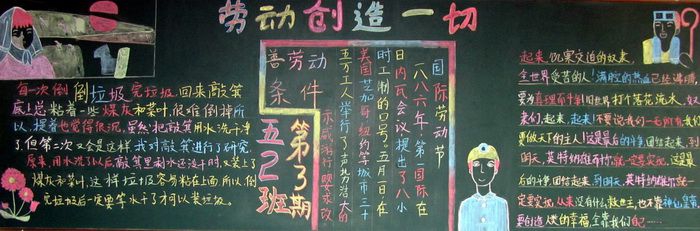 劳动创造一切
每一次倒倒垃圾完垃圾,回来敲筑
底上总粘着一些煤灰和菜叶,很难倒掉所
以,提着也觉得很沉,虽然把敲筑用水洗干净
了但第二次又会是这样 我对敲筑进行了研究,
原来,用水洗了以后敲筑里剩水还没干时,又装上了
煤灰和菜叶,这样垃圾容易粘在上面,所以,倒
完垃圾后一定要等水干了才可以装垃圾。
善劳动
条件
五2班
第3期
国际劳动节
一八八六年,第一国际在
日内瓦会议提出了八小
时工制的口号。五月一日在
美国芝加哥纽约等城市三十
五万工人举行了声势浩大的
示威游行 要求改
起来,饥寒交迫的奴隶,
全世界受苦的人!满腔的热血已经沸腾,
要为真理而斗争!旧世界打个落花流水,奴隶
们,起来,起来!不要说我们一无所有,我们
要做天下的主人!这是最后的斗争,团结起来,到
明天,英特纳雄耐尔就一定要实现,这是最
后的斗争,团结起来,到明天,英特纳雄耐尔就一
定要实现,从来没有什么救世主,也不靠神仙皇帝,
要创造人类的幸福,全靠我们自己……